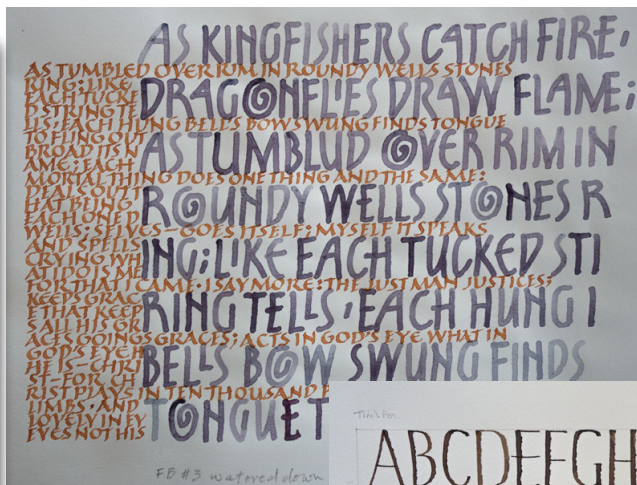 AS KINGFISHERS CATCH FIRE,
DRAGONFLIES DRAW FLAME;
AS TUMBLUD OVER RIM IN
ROUNDY WELLS STONES R
ING; LIKE EACH TUCKED STI
RING TELLS, EACH HUNG I
BELLS BOW SWUNG FINDS
TONGUE T
AS TUMBLED OVER RIM IN ROUNDY WELLS STONES
RING; LIKE
EACH TUCKE
D STRING TE
LLS EACH HUNG BELLS BOW SWUNG FINDS TONGUE
TO FLING OUT
BROAD ITS N
AME; EACH
MORTAL THING DOES ONE THING AND THE SAME:
DEALS OUT T
HAT BEING
EACH ONE D
WELLS; SELVES – GOES ITSELF; MYSELF IT SPEAKS
AND SPELLS
CRYING WH
AT I DO IS ME
FOR THAT I CAME. I SAY MORE: THE JUST MAN JUSTICES;
KEEPS GRAC
E THAT KEEP
S ALL HIS GR
ACES GOINGS GRACES; ACTS IN GOD'S EYE WHAT IN
GOD'S EYE H
HE IS – CHRI
ST – FOR CH
RIST PLAYS IN TEN THOUSAND
LIMBS, AND
LOVELY IN EY
EYES NOT HIS
FB #3 watered down
Tim's Pen
ABCDEFGH